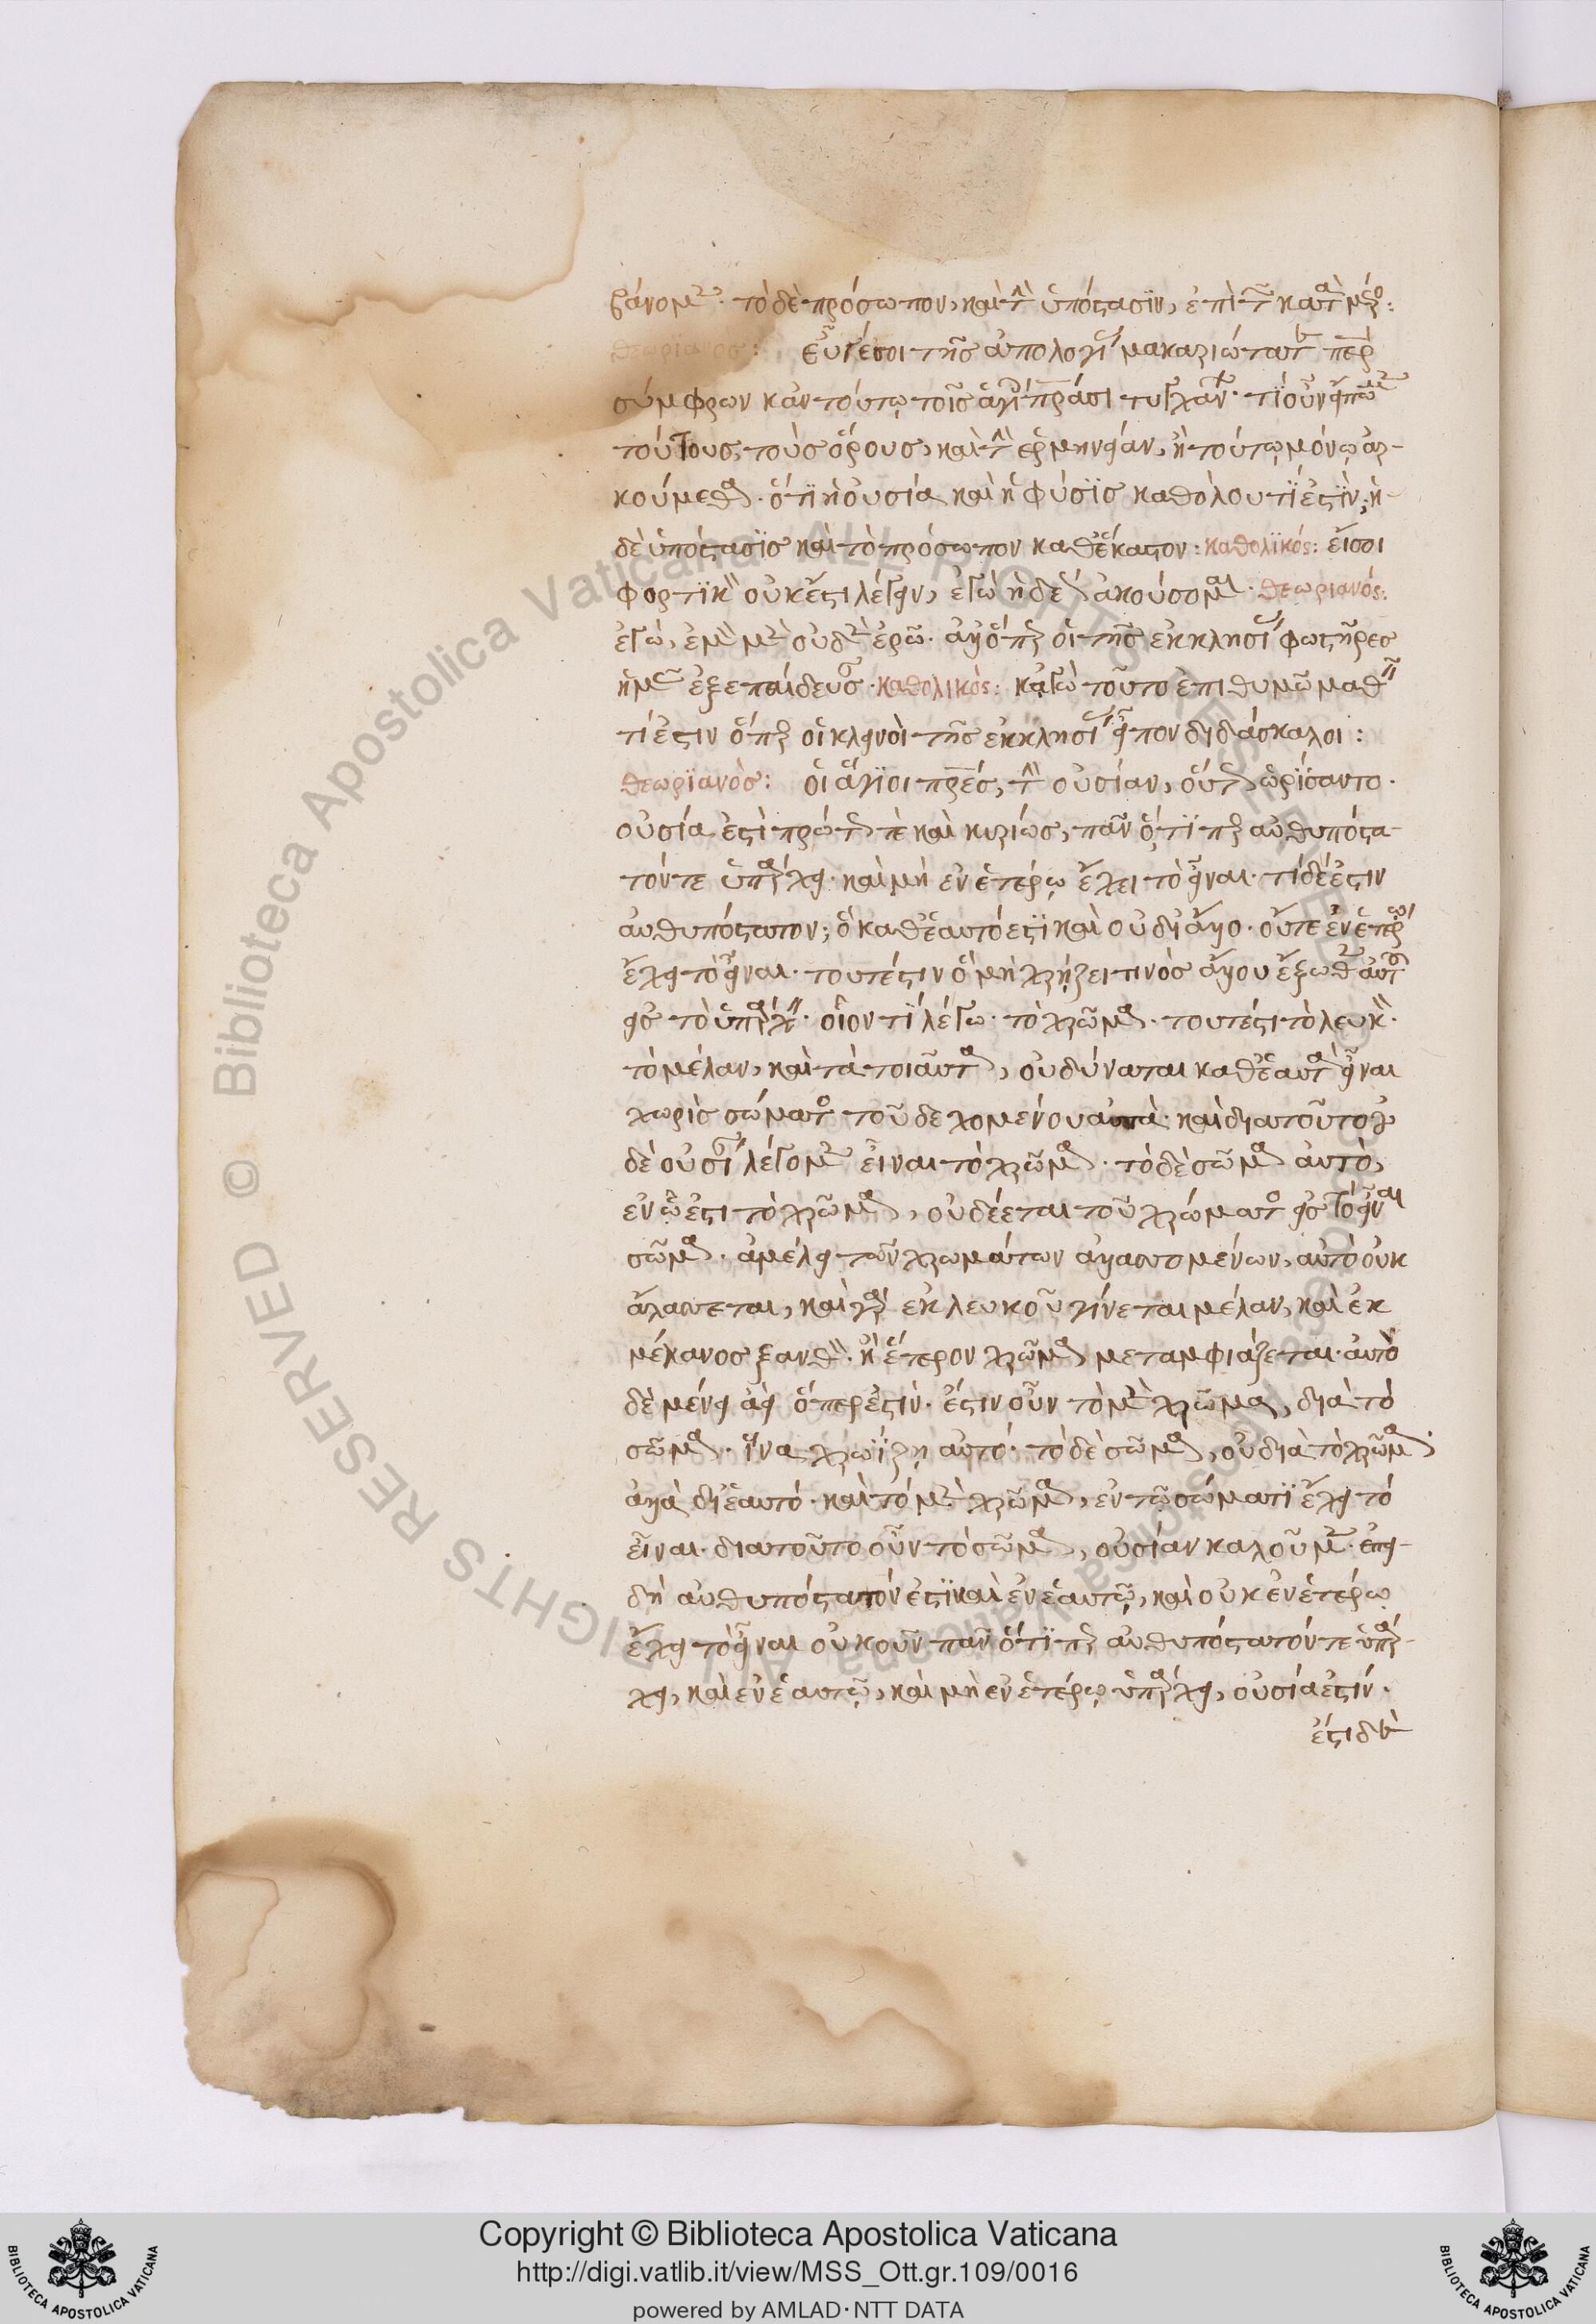 βάνομεν· τὸ δὲ πρόσωπον, καὶ τὴν ὑπόστασϊν, ἐπὶ τῶν κατὰ μέρος:
θεωριανος: εὖγέ σοι τῆς ἀπολογίας μακαριώτατε πάτερ
σύμφρων κἀν τούτω τοῖς ἁγίοις πατράσι τυγχάνεις· τί οὖν εἴπωμεν
τούτους τοὺς ὅρους, καὶ τὴν ἑρμηνείαν, ἢ τούτω μόνω ἀρ-
κούμεθα. ὅτϊ ἡ οὐσία καὶ ἡ φύσϊς καθόλου τί ἐστϊν; ἡ
δὲ ὑπόστασϊς καὶ τὸ πρόσωπον καθέκαστον: καθολϊκός: εἴ σοι
φορτϊκὸν οὐκ ἔστι λέγειν, ἐγὼ ἡδέως ἀκούσομαι. θεωριανός:
ἐγὼ, ἐμὸν μὲν οὐδὲν ἐρῶ. ἀλλ' ὅπερ οἱ τῆς ἐκκλησίας φωστῆρες
ἡμᾶς ἐξεπαίδευσαν· καθολικὸς: κἀγὼ τοῦτο ἐπιθυμῶ μαθεῖν
τί ἐστιν ὅπερ οἱ κλεινοὶ τῆς ἐκκλησίας εἶπον διδάσκαλοι:
θεωρϊανὸς: οἱ ἅγϊοι πατέρες, τὴν οὐσίαν, οὕτως ὡρίσαντο.
οὐσία ἐστὶ πρώτως τὲ καὶ κυρίως, πᾶν ὅτϊπερ αὐθυπόστα-
τόν τε ὑπάρχει· καὶ μὴ ἐν ἑτέρω ἔχει τὸ εἶναι· τί δέ ἐστιν
αὐθυπόστατον; ὃ καθ' ἑαυτό ἐστϊ καὶ οὐ δι' ἄλλο. οὔτε ἐν ἑτέρω
ἔχει τὸ εἶναι. τουτέστιν ὃ μὴ χρήζει τινὸς ἄλλου ἔξωθεν αὐτοῦ
εἰς τὸ ὑπάρχειν. οἷον τϊ λέγω· τὸ χρῶμα. τουτέστι τὸ λευκὸν.
τὸ μέλαν, καὶ τὰ τοιαῦτα, οὐ δύναται καθ' ἑαυτὰ εἶναι
χωρὶς σώματος τοῦ δεχομένου αὐτὰ· καὶ διατοῦτο οὐ
δὲ οὐσίαν λέγομεν εἶναι τὸ χρῶμα. τὸ δὲ σῶμα αὐτὸ,
ἐν ᾧ ἐστι τὸ χρῶμα, οὐ δέεται τοῦ χρώματος εἰς τὸ εἶναι
σῶμα. ἀμέλει τῶν χρωμάτων ἀλλαττομένων, αὐτὸ οὐκ
ἀλάττεται, καὶ γὰρ ἐκ λευκοῦ γίνεται μέλαν, καὶ ἐκ
μέλανος ξανθὸν. ἢ ἕτερον χρῶμα μεταμφιάζεται. αὐτὸ
δὲ μένει ἀεὶ ὅπερ ἐστὶν. ἔστιν οὖν τὸ μὲν χρῶμα, διὰ τὸ
σῶμα. ἵνα χρωϊζη αὐτό· τὸ δὲ σῶμα, οὐ διὰ τὸ χρῶμα.
ἀλλὰ δι' ἑαυτό· καὶ τὸ μὲν χρῶμα, ἐν τῶ σώματϊ ἔχει τὸ
εἶναι. διατοῦτο οὖν τὸ σῶμα, οὐσίαν καλοῦμεν· ἐπει-
δὴ αὐθυπόστατόν ἐστϊ καὶ ἐν ἑαυτῶ, καὶ οὐκ ἐν ἑτέρω
ἔχει τὸ εἶναι οὐκοῦν πᾶν ὅτϊπερ αὐθυπόστατόν τε ὑπάρ-
χει, καὶ ἐν ἑαυτῶ, καὶ μὴ ἐν ἑτέρω ὑπάρχει, οὐσία ἐστίν.
ἔστι δὲ
Copyright © Biblioteca Apostolica Vaticana
http://digi.vatlib.it/view/MSS_Ott.gr.109/0016
powered by AMLAD·NTT DATA